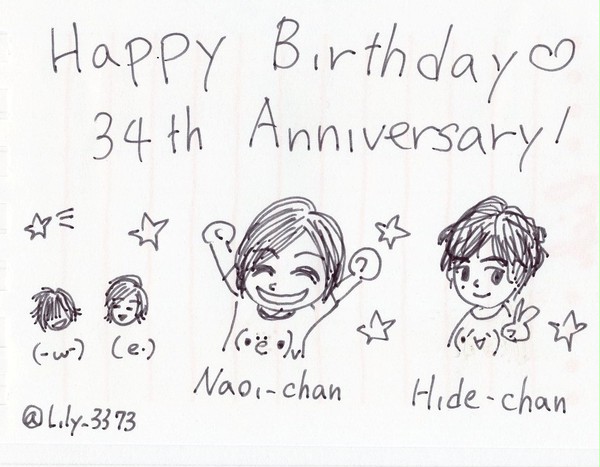 Happy Birthday♡
34th Anniversary!
(-w-) (e・)
Naoi-chan
Hide-chan
@Lily_3373